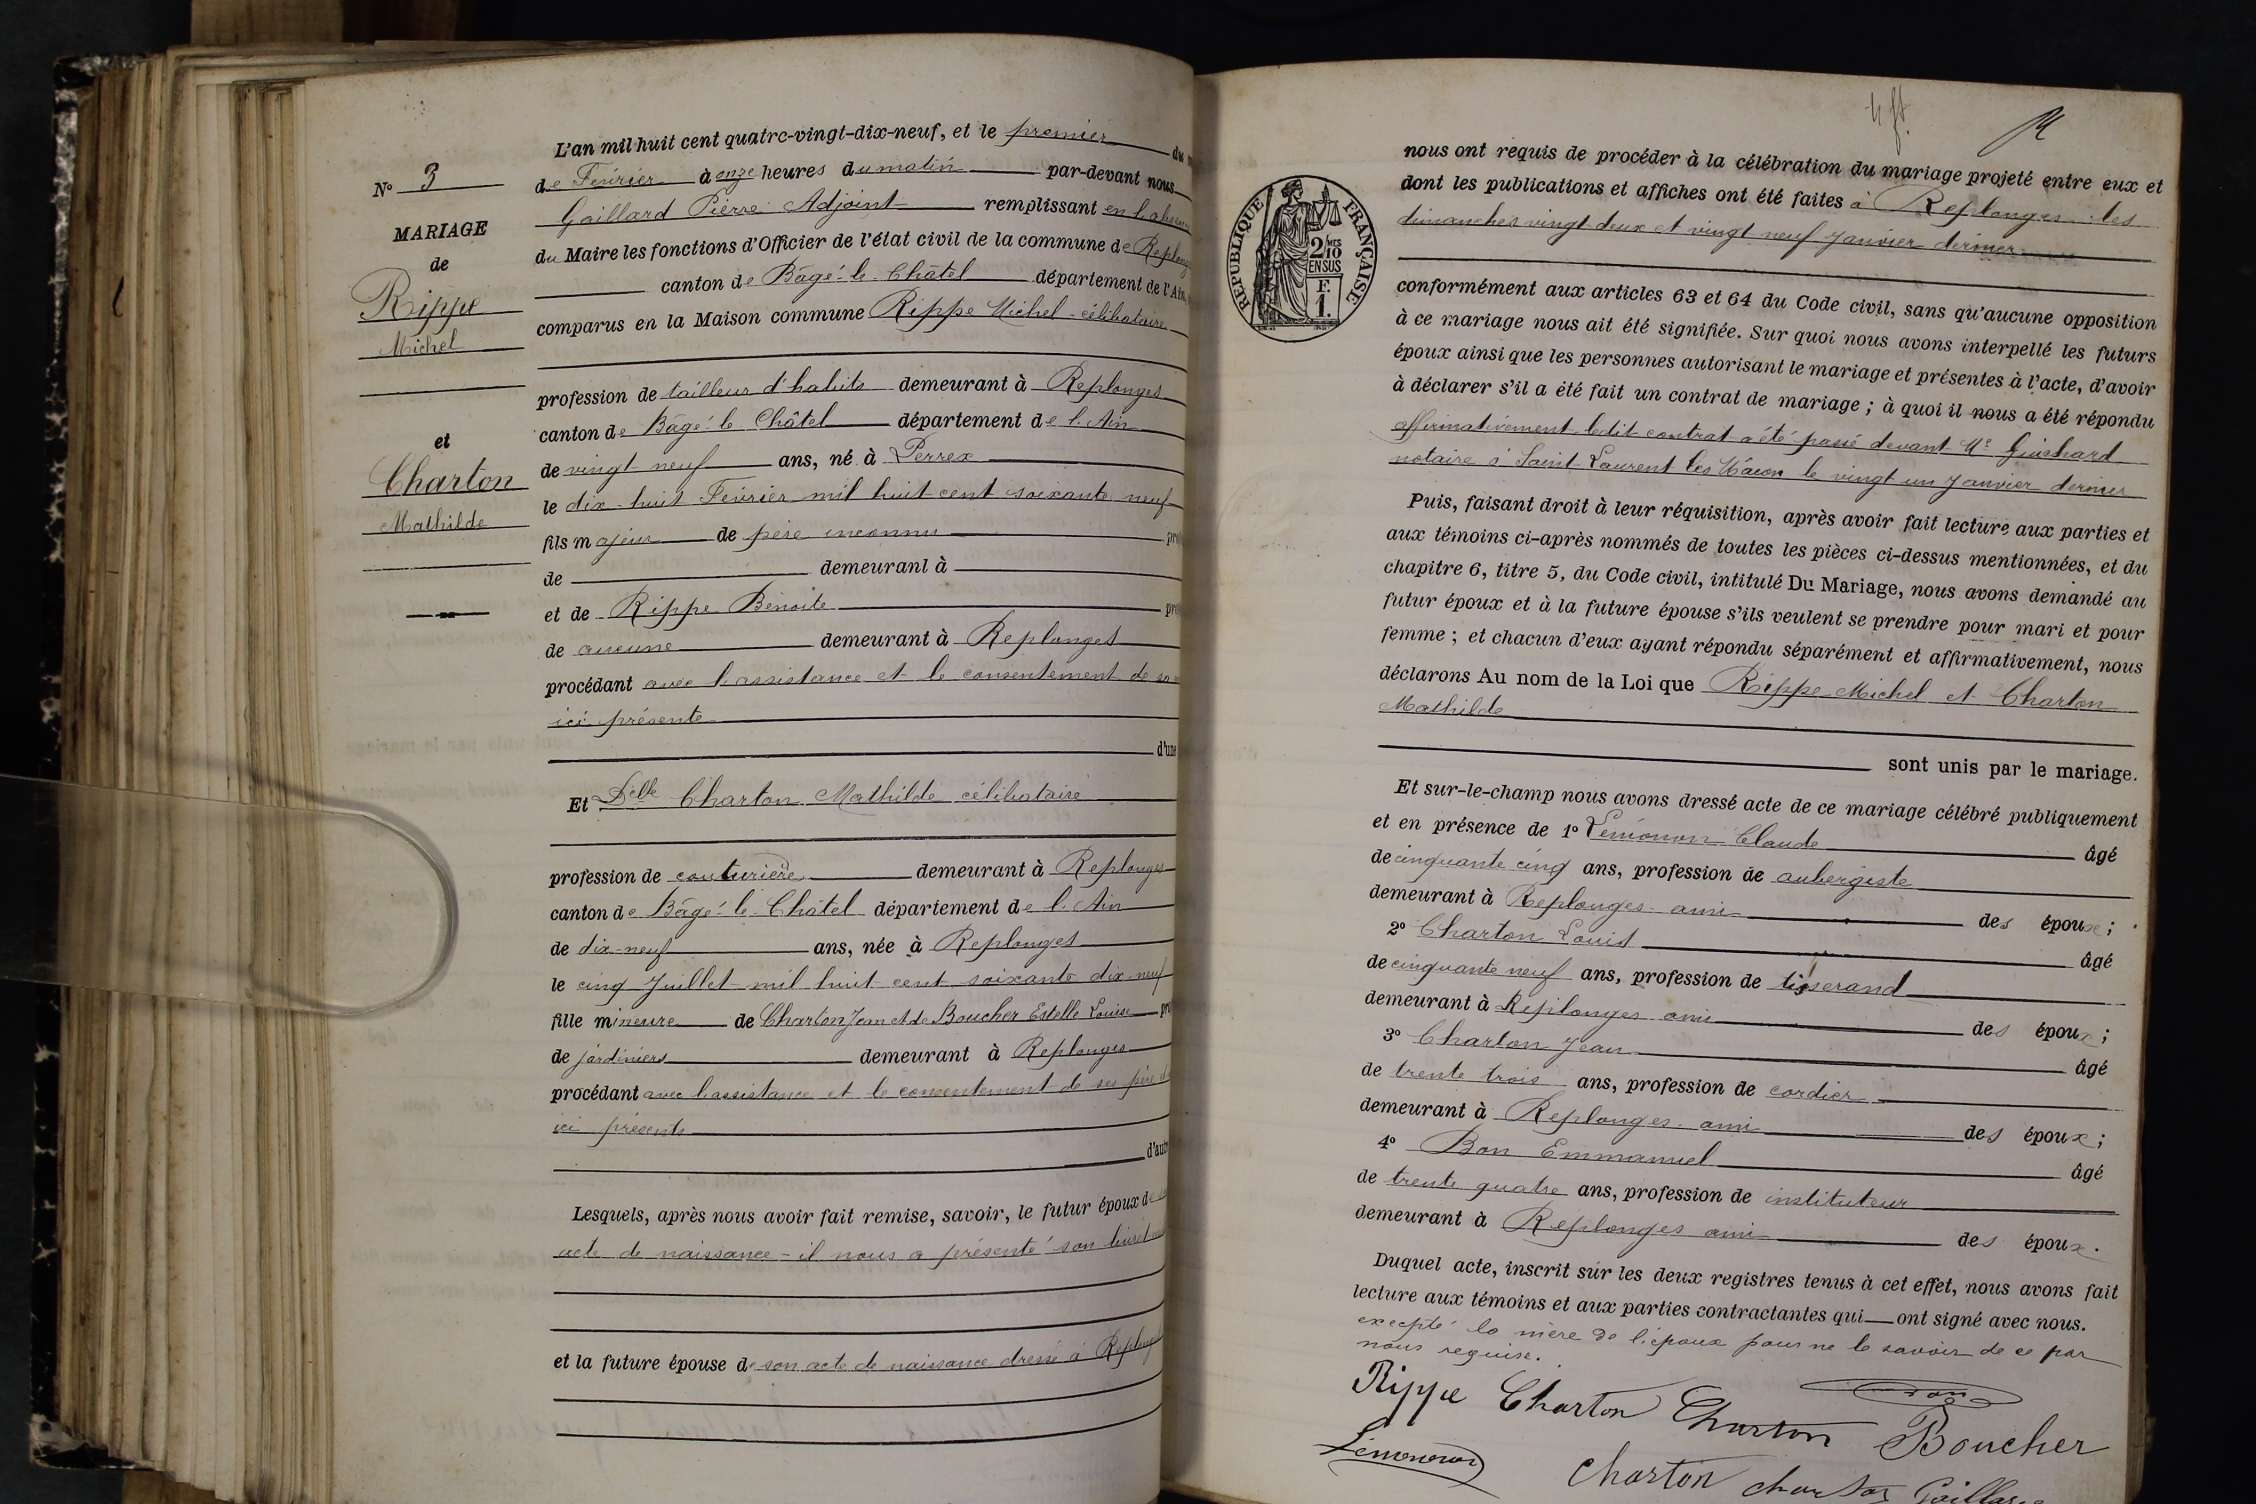 N° 3
MARIAGE
de
Rippe
Michel
et
Charton
Mathilde
L'an mil huit cent quatre-vingt-dix-neuf, et le premier du
de Février à onze heures du matin par-devant nous
Gaillard Pierre Adjoint remplissant en l'absence
du Maire les fonctions d'Officier de l'état civil de la commune de Replonges
canton de Bâgé-le-Châtel département de l'Ain,
comparus en la Maison commune Rippe Michel célibataire
profession de tailleur d'habits demeurant à Replonges
canton de Bâgé-le-Châtel département de l'Ain
de vingt neuf ans, né à Perrex
le dix-huit Février mil huit cent soixante neuf
fils majeur de père inconnu
de demeurant à
et de Rippe Benoite
de aucune demeurant à Replonges
procédant avec l'assistance et le consentement de sa
ici présente
d'une
Et Delle Charton Mathilde célibataire
profession de couturière demeurant à Replonges
canton de Bâgé-le-Châtel département de l'Ain
de dix-neuf ans, née à Replonges
le cinq Juillet mil huit cent soixante dix-neuf
fille mineure de Charton Jean et de Boucher Estelle Louise
de jardiniers demeurant à Replonges
procédant avec l'assistance et le consentement de ses père
ici présents
d'autre
Lesquels, après nous avoir fait remise, savoir, le futur époux de
acte de naissance - il nous a présenté son livret
et la future épouse de son acte de naissance dressé à Replonges
nous ont requis de procéder à la célébration du mariage projeté entre eux et
dont les publications et affiches ont été faites à Replonges les
dimanches vingt deux et vingt neuf Janvier dernier
RÉPUBLIQUE FRANÇAISE
2/10 MES
EN SUS
F.
1.
conformément aux articles 63 et 64 du Code civil, sans qu'aucune opposition
à ce mariage nous ait été signifiée. Sur quoi nous avons interpellé les futurs
époux ainsi que les personnes autorisant le mariage et présentes à l'acte, d'avoir
à déclarer s'il a été fait un contrat de mariage ; à quoi il nous a été répondu
affirmativement ledit contrat a été passé devant Me Guichard
notaire à Saint Laurent les Mâcon le vingt un Janvier dernier
Puis, faisant droit à leur réquisition, après avoir fait lecture aux parties et
aux témoins ci-après nommés de toutes les pièces ci-dessus mentionnées, et du
chapitre 6, titre 5, du Code civil, intitulé Du Mariage, nous avons demandé au
futur époux et à la future épouse s'ils veulent se prendre pour mari et pour
femme ; et chacun d'eux ayant répondu séparément et affirmativement, nous
déclarons Au nom de la Loi que Rippe Michel et Charton
Mathilde
sont unis par le mariage.
Et sur-le-champ nous avons dressé acte de ce mariage célébré publiquement
et en présence de 1° Lémonon Claude âgé
de cinquante cinq ans, profession de aubergiste
demeurant à Replonges ami des époux ;
2° Charton Louis âgé
de cinquante neuf ans, profession de tisserand
demeurant à Replonges ami des époux ;
3° Charton Jean âgé
de trente trois ans, profession de cordier
demeurant à Replonges ami des époux ;
4° Bon Emmanuel âgé
de trente quatre ans, profession de instituteur
demeurant à Replonges ami des époux.
Duquel acte, inscrit sur les deux registres tenus à cet effet, nous avons fait
lecture aux témoins et aux parties contractantes qui ont signé avec nous.
excepté la mère de l'époux pour ne le savoir de ce par
nous requise.
Rippe Charton Charton Bon Boucher
Lémonon Charton Charton Gaillard